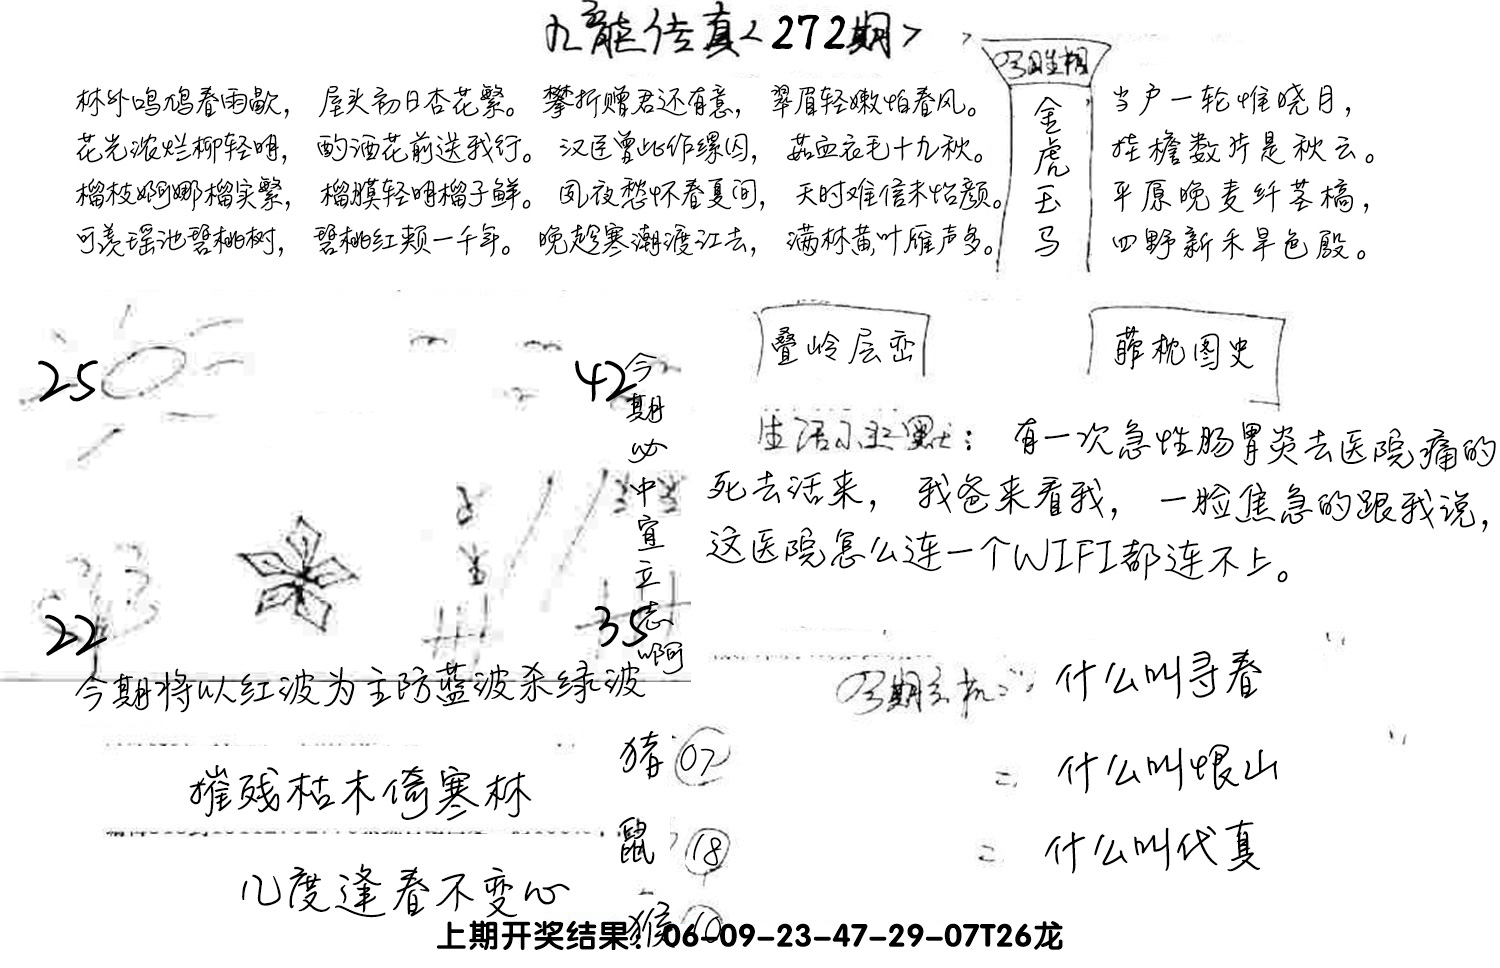 九龍传真<272期>
今日生相
金虎玉马
林外鸣鸠春雨歇， 屋头初日杏花繁。 攀折赠君还有意， 翠眉轻嫩怕春风。
花光浓烂柳轻明， 酌酒花前送我行。 汉臣曾此作缧囚， 茹血衣毛十九秋。
榴枝婀娜榴实繁， 榴膜轻明榴子鲜。 夙夜愁怀春夏间， 天时难信未怡颜。
可羡瑶池碧桃树， 碧桃红颊一千年。 晚趁寒潮渡江去， 满林黄叶雁声多。
当户一轮惟晓月，
挂檐数片是秋云。
平原晚麦纤茎槁，
四野新禾旱色殷。
25
42
22
35
今期必中宜立志啊
今期将以红波为主防蓝波杀绿波
叠岭层峦
葄枕图史
生活幽默：有一次急性肠胃炎去医院痛的
死去活来， 我爸来看我， 一脸焦急的跟我说，
这医院怎么连一个WIFI都连不上。
今期玄机
什么叫寻春
什么叫恨山
什么叫代真
摧残枯木倚寒林
几度逢春不变心
猪 07
鼠 18
猴 10
上期开奖结果：06-09-23-47-29-07T26龙